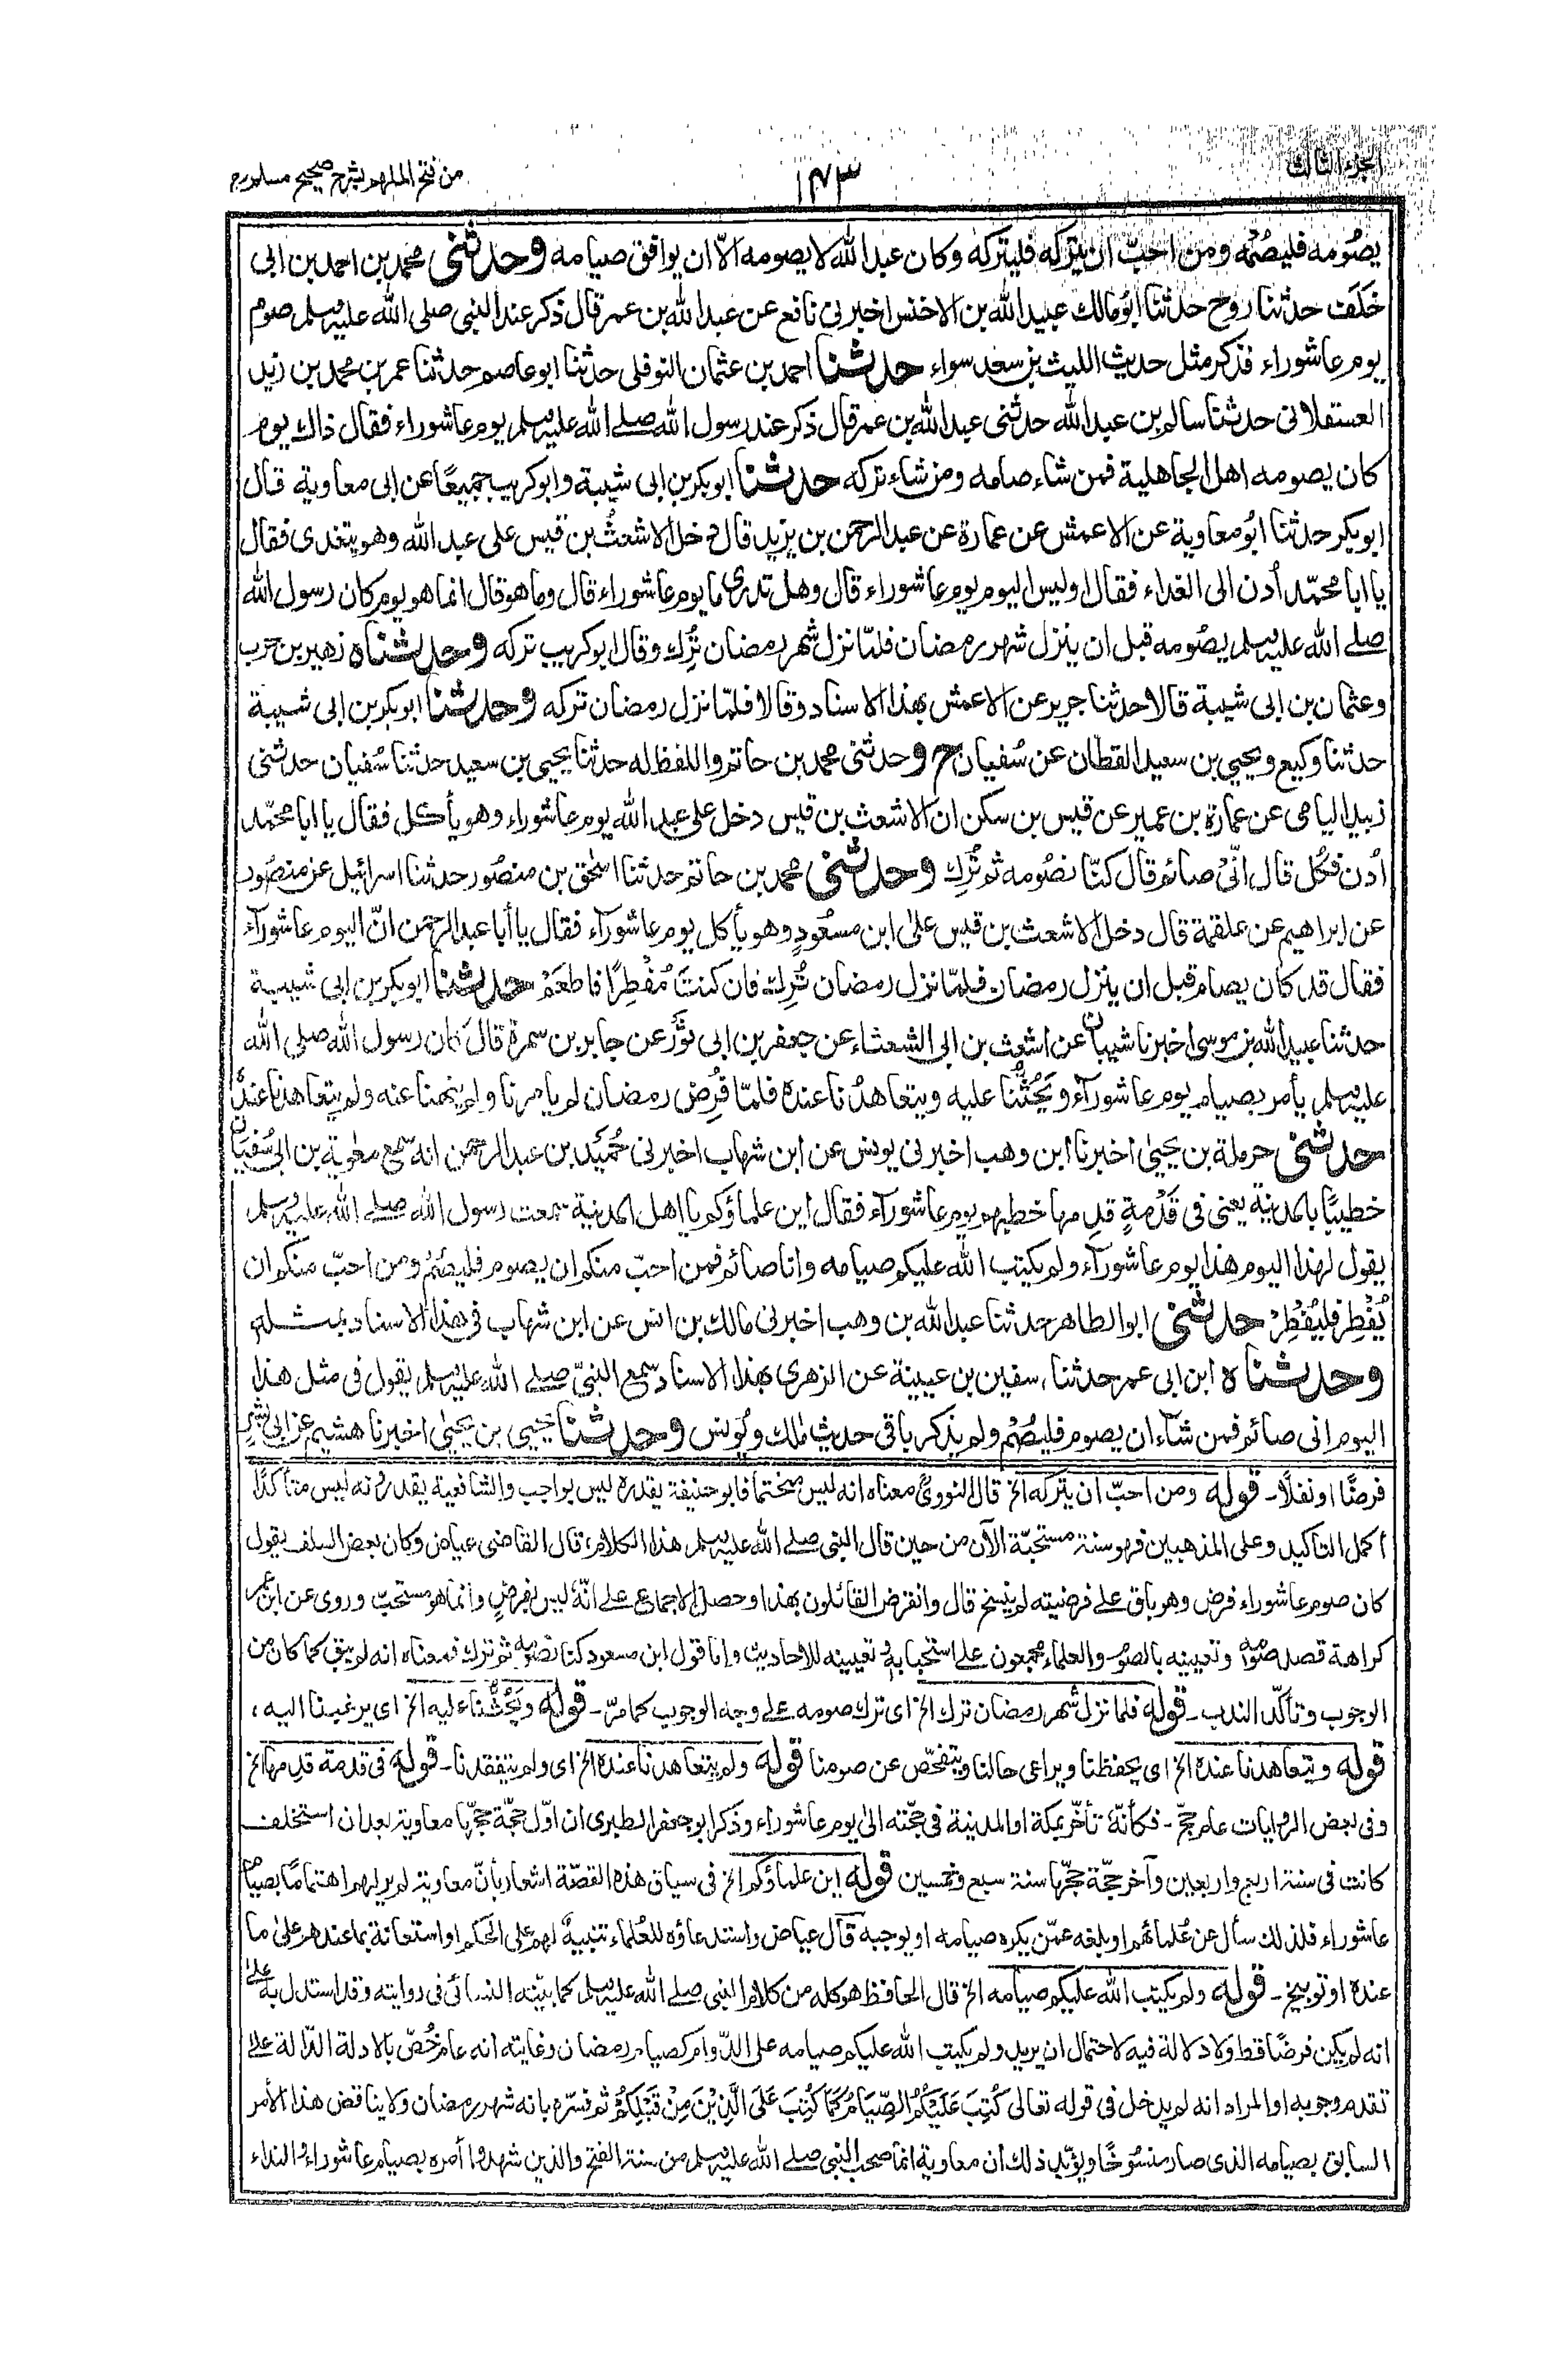 الجزء الثالث
١٤٣
من فتح الملهم بشرح صحيح مسلم
يصُومه فليصُمْه ومن احبّ ان يتركه فليتركه وكان عبد الله لا يصومه الّا ان يوافق صيامه وحدثنى محمد بن احمد بن ابى
خَلَف حدثنا روح حدثنا ابُو مالك عبيد الله بن الاخنس اخبرنى نافع عن عبد الله بن عمر قال ذكر عند النبى صلى الله عليه وسلم صوم
يوم عاشوراء فذكر مثل حديث الليث بن سعد سواء حدثنا احمد بن عثمان النوفلى حدثنا ابو عاصم حدثنا عمر بن محمد بن زيد
العسقلانى حدثنا سالم بن عبد الله حدثنى عبد الله بن عمر قال ذكر عند رسول الله صلے الله عليه وسلم يوم عاشوراء فقال ذاك يوم
كان يصومه اهل الجاهلية فمن شاء صامه ومن شاء تركه حدثنا ابو بكر بن ابى شيبة وابو كريب جميعًا عن ابى معاوية قال
ابو بكر حدثنا ابُو معاوية عن الاعمش عن عمارة عن عبد الرحمن بن يزيد قال دخل الاشعثُ بن قيس على عبد الله وهو يتغدى فقال
يا ابا محمّد اُدن الى الغداء فقال اوليس اليوم يوم عاشوراء قال وهل تدرى ما يوم عاشوراء قال وما هو قال انما هو يوم كان رسول الله
صلے الله عليه وسلم يصُومه قبل ان ينزل شهر رمضان فلمّا نزل شهر رمضان تُرِك وقال ابو كريب تركه وحدثناه زهير بن حرب
وعثمان بن ابى شيبة قالا حدثنا جرير عن الاعمش بهذا الاسناد وقالا فلمّا نزل رمضان تركه وحدثنا ابو بكر بن ابى شيبة
حدثنا وكيع ويحيى بن سعيد القطان عن سُفيان ح وحدثنى محمد بن حاتم واللفظ له حدثنا يحيى بن سعيد حدثنا سُفيان حدثنى
زبيد اليامى عن عمارة بن عمير عن قيس بن سكن ان الاشعث بن قيس دخل على عبد الله يوم عاشوراء وهو يأكل فقال يا ابا محمّد
اُدن فكُل قال انّى صائم قال كنّا نصُومه ثم تُرِك وحدثنى محمد بن حاتم حدثنا اسحٰق بن منصُور حدثنا اسرائيل عن منصُور
عن ابراهيم عن علقمة قال دخل الاشعث بن قيس علىٰ ابن مسعُودٍ وهو يأكل يوم عاشورآء فقال يا أبا عبد الرحمن انّ اليوم عاشورآء
فقال قد كان يصام قبل ان ينزل رمضان فلمّا نزل رمضان تُرِك فان كنتَ مُفْطِرًا فاطعَمْ حدثنا ابو بكر بن ابى شيبة
حدثنا عبيد الله بن موسىٰ اخبرنا شيبان عن اشعث بن ابى الشعثاء عن جعفر بن ابى ثَوْر عن جابر بن سمرة قال كان رسول الله صلى الله
عليه وسلم يأمر بصيام يوم عاشورآء ويَحُثُّنا عليه ويتعاهدُنا عنده فلمّا فُرِض رمضان لم يأمرنا ولم ينهنا عنه ولم يتعاهدنا عنده
حدثنى حرملة بن يحيىٰ اخبرنا ابن وهب اخبرنى يونس عن ابن شهاب اخبرنى حُمَيْد بن عبد الرحمن انه سمع معٰوية بن ابى سُفيان
خطيبًا بالمدينة يعنى فى قَدْمةٍ قدِمها خطبهم يوم عاشورآء فقال اين علماؤكم يا اهل المدينة سمعت رسول الله صلے الله عليه وسلم
يقول لهذا اليوم هذا يوم عاشورآء ولم يكتب الله عليكم صيامه وانا صائم فمن احبّ منكم ان يصوم فليصُمْ ومن احبّ منكم ان
يُفْطِر فليُفْطِرْ حدثنى ابو الطاهر حدثنا عبد الله بن وهب اخبرنى مالك بن انس عن ابن شهاب فى هذا الاسناد بمثله
وحدثناه ابن ابى عمر حدثنا سفين بن عيينة عن الزهرى بهذا الاسناد سمع النبىّ صلے الله عليه وسلم يقول فى مثل هذا
اليوم انى صائم فمن شآء ان يصوم فليصُمْ ولم يذكر باقى حديث مٰلك ويُونس وحدثنا يحيى بن يحيىٰ اخبرنا هشيم عن ابى بشر
فرضًا او نفلًا۔ قوله ومن احبّ ان يتركه الخ قال النووىؒ معناه انه ليس متحتما فابو حنيفة يقدره ليس بواجب والشافعية يقدرونه ليس متأكدًا
أكمل التاكيد وعلى المذهبين فهو سنة مستحبّة الآن من حين قال النبى صلے الله عليه وسلم هذا الكلام، قال القاضى عياض وكان بعض السلف يقول
كان صوم عاشوراء فرض وهو باق علے فرضيته لم ينسخ قال وانقرض القائلون بهذا وحصل الاجماع علے انّهٗ ليس بفرضٍ وانما هو مستحبّ وروى عن ابن عمر
كراهة قصد صومه وتعيينه بالصوم والعلماء مجمعون علے استحبابه وتعيينه للاحاديث وانا قول ابن مسعود كنا نصُومه ثم ترك فمعناه انه لم يبق كما كان من
الوجوب وتأكّد الندب۔ قوله فلما نزل شهر رمضان ترك الخ اى ترك صومه علے وجه الوجوب كما مرّ۔ قوله ويَحُثُّنا عليه الخ اى يرغبنا اليه،
قوله ويتعاهدنا عنده الخ اى يحفظنا ويراعى حالنا ويتفحّص عن صومنا قوله ولم يتعاهدنا عنده الخ اى ولم يتفقدنا۔ قوله فى قدمة قدِمها الخ
وفى بعض الروايات عام حجّ۔ فكأنّهٗ تأخّر بمكة او المدينة فى حجّته الىٰ يوم عاشوراء وذكر ابو جعفر الطبرى ان اوّل حجّة حجّها معاوية بعد ان استخلف
كانت فى سنة اربع واربعين وآخر حجّة حجّها سنة سبع وخمسين قوله اين علماؤكم الخ فى سياق هذه القصّة اشعار بأنّ معاوية لم ير لهم اهتمامًا بصيام
عاشوراء فلذلك سأل عن عُلمائهم او بلغه عمّن يكره صيامه او يوجبه قال عياض واستدعاؤه للعُلماء تنبيهٌ لهم على الحكم او استعانة بما عندهم علىٰ ما
عنده او توبيخ۔ قوله ولم يكتب الله عليكم صيامه الخ قال الحافظ هو كله من كلام النبى صلے الله عليه وسلم كما بيّنه النسائى فى روايته وقد استدل به علےٰ
انه لم يكن فرضًا قط ولا دلالة فيه لاحتمال ان يريد ولم يكتب الله عليكم صيامه على الدّوام كصيام رمضان وغايته انه عام خُصّ بالادلة الدّالة علے
تقدم وجوبه او المراد انه لم يدخل فى قوله تعالى كُتِبَ عَلَيْكُمُ الصِّيَامُ كَمَا كُتِبَ عَلَى الَّذِيْنَ مِنْ قَبْلِكُمْ ثم فسّره بانه شهر رمضان ولا يناقض هذا الأمر
السابق بصيامه الذى صار منسُوخًا ويؤيّد ذلك ان معاوية انما صحب النبى صلے الله عليه وسلم من سنة الفتح والذين شهدوا أمره بصيام عاشوراء والنداء